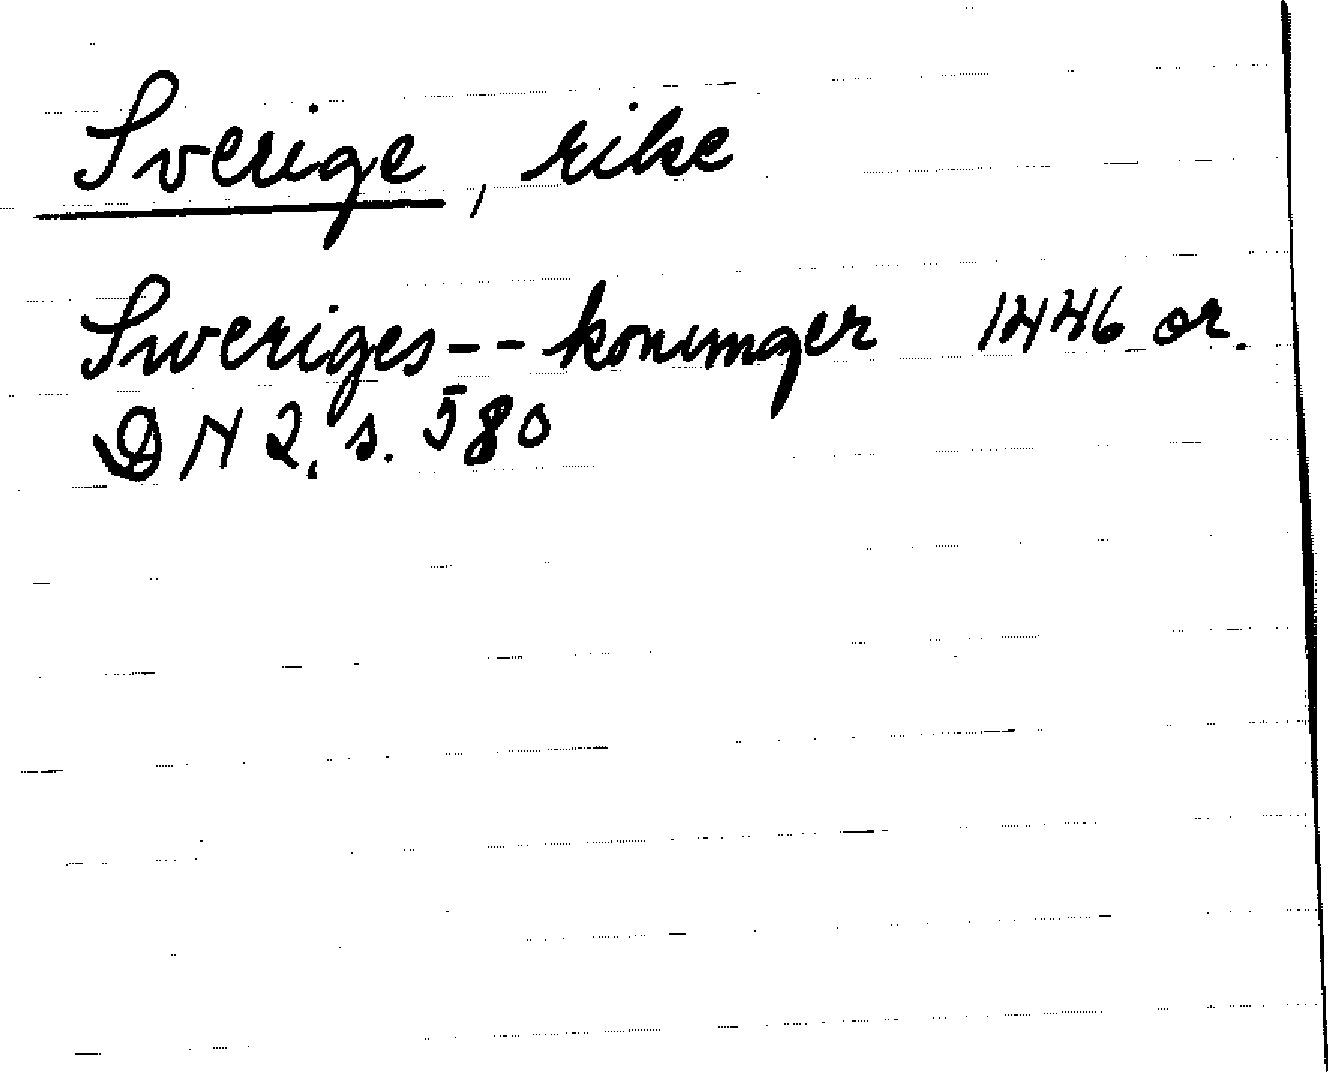 Sverige, rike
Sweriges -- konunger 1446 or.
DN 2, s. 580